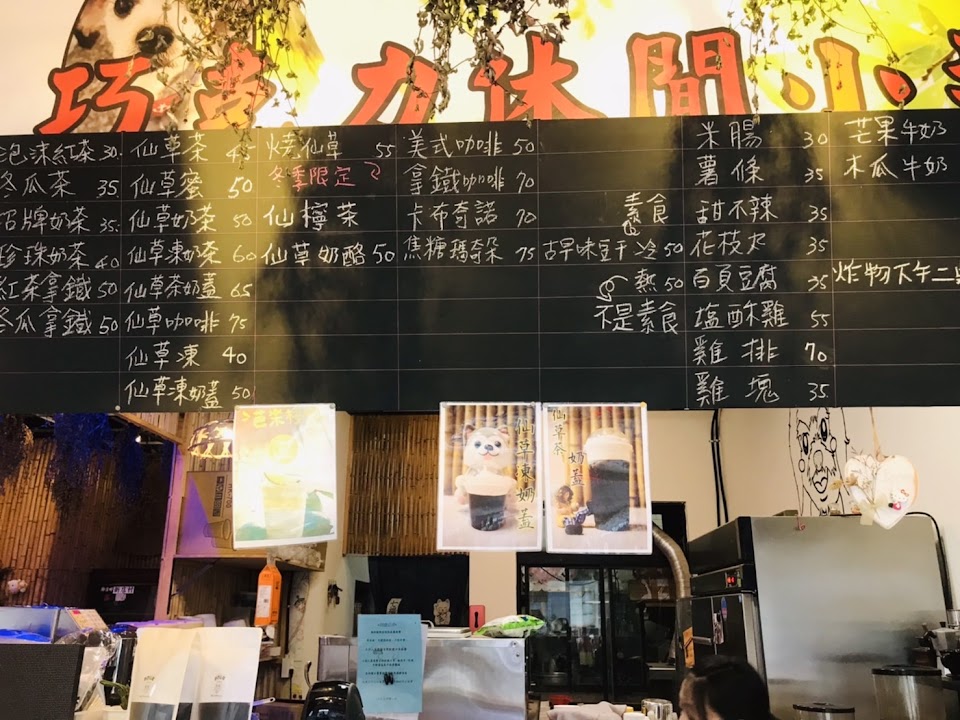 巧克力休閒小
泡沫紅茶 30
冬瓜茶 35
招牌奶茶 35
珍珠奶茶 40
紅茶拿鐵 50
冬瓜拿鐵 50
仙草茶 45
仙草蜜 50
仙草奶茶 50
仙草凍奶茶 60
仙草茶奶蓋 65
仙草咖啡 75
仙草凍 40
仙草凍奶蓋 50
燒仙草 55
冬季限定
仙檸茶
仙草奶酪 50
美式咖啡 50
拿鐵咖啡 70
卡布奇諾 70
焦糖瑪奇朵 75
素食
古早味豆干 冷 50
熱 50
不是素食
米腸 30
薯條 35
甜不辣 35
花枝丸 35
百頁豆腐 35
塩酥雞 55
雞排 70
雞塊 35
芒果牛奶
木瓜牛奶
炸物下午二
仙草凍奶蓋
仙草茶
奶蓋